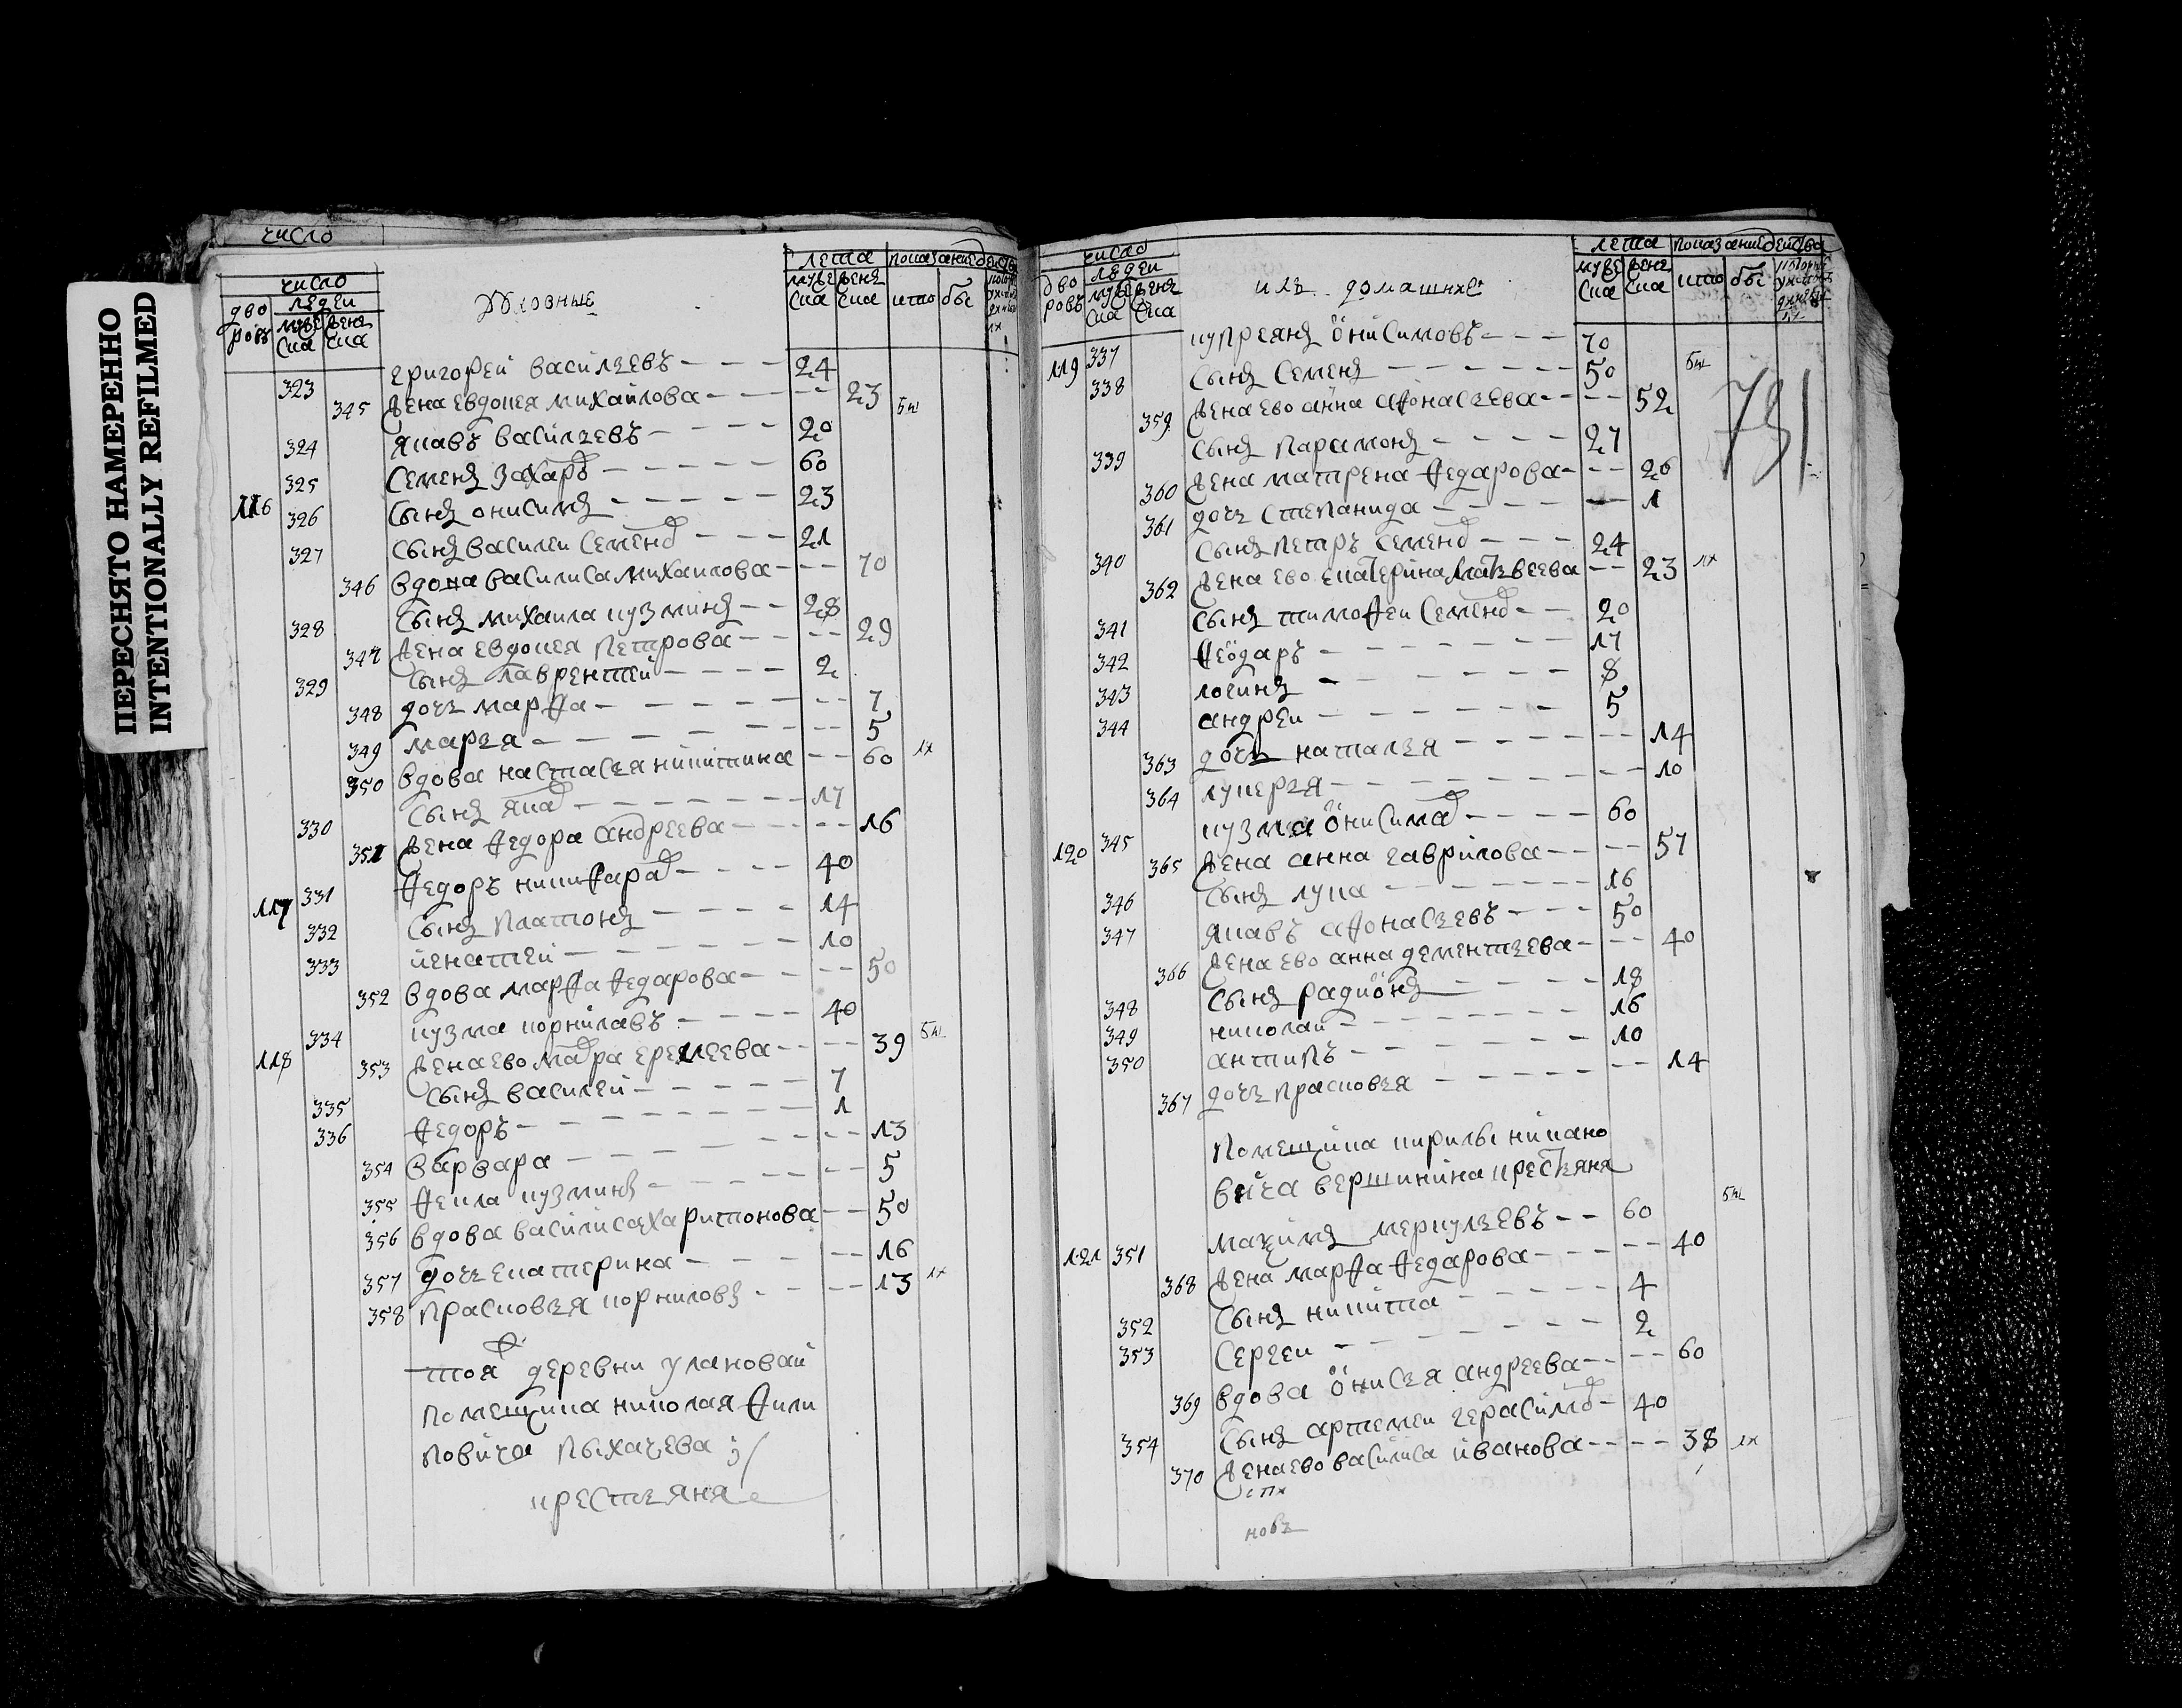 ПЕРЕСНЯТО НАМЕРЕННО
INTENTIONALLY REFILMED
число
число
дво ровъ
людеи
мужеска
женска
Духовные
лета
мужеска
женска
показание действа
кто
бы
григорей васильевъ 24
323
345 жена евдокея михаилова 23 бы
324 яковъ васильевъ 20
325 семенъ захаръ 60
116 326 сынъ онисимъ 23
327 сынъ василеи семено 21
346 вдова василиса михаилова 70
328 сынъ михаила кузминъ 28
347 жена евдокея петрова 29
329 сынъ лаврентей 2
348 дочь марфа 7
349 марья 5
350 вдова настасья никитина 60 ихъ
330 сынъ яко 17
351 жена федора андреева 16
117 331 федоръ никифаро 40
332 сынъ платонъ 14
333 игнатей 10
352 вдова марфа федарова 50
118 334 кузма корнилавъ 40
353 жена ево мавра еремеева 39 бы
335 сынъ василей 7
336 федоръ 1
354 варвара 13
355 фекла кузминъ 5
356 вдова василиса харитонова 50
357 дочь екатерина 16
358 прасковья корниловъ 13 ихъ
тоя деревни улановай
помещика николая фили
повича пыхачева
крестьяня
число
дво ровъ
людеи
мужеска
женска
ихъ домашние
лета
мужеска
женска
показание действа
кто
бы
119 337 купреянъ онисимовъ 70
338 сынъ семенъ 50 бы
359 жена ево анна афонасьева 52
731
339 сынъ парамонъ 27
360 жена матрена федарова 26
361 дочь степанида 1
340 сынъ петръ семено 24
362 жена ево екатерина матвеева 23 ихъ
341 сынъ тимофеи семено 20
342 феодаръ 17
343 логинъ 8
344 андреи 5
363 дочь наталья 14
364 лукерья 10
120 345 кузма онисимо 60
365 жена анна гаврилова 57
346 сынъ лука 16
347 яковъ афонасьевъ 50
366 жена ево анна дементьева 40
348 сынъ радионъ 18
349 николаи 16
350 антипъ 10
367 дочь прасковья 14
помещика кирилы никано
вича вершинина крестьяня
121 351 макимъ меркульевъ 60 бы
368 жена марфа федарова 40
352 сынъ никита 4
353 сергеи 2
369 вдова онисья андреева 60
354 сынъ артемеи герасимо 40
370 жена ево василиса иванова 38 ихъ
новъ